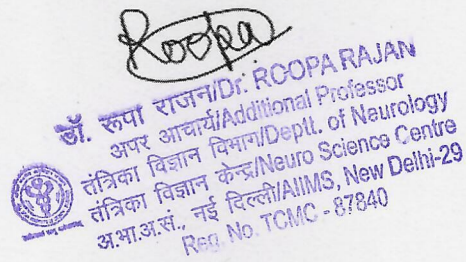 Roopa
डॉ. रूपा राजन/Dr. ROOPA RAJAN
अपर आचार्य/Additional Professor
तंत्रिका विज्ञान विभाग/Deptt. of Neurology
तंत्रिका विज्ञान केन्द्र/Neuro Science Centre
अ.भा.अ.सं., नई दिल्ली/AIIMS, New Delhi-29
Reg. No. TCMC - 87840